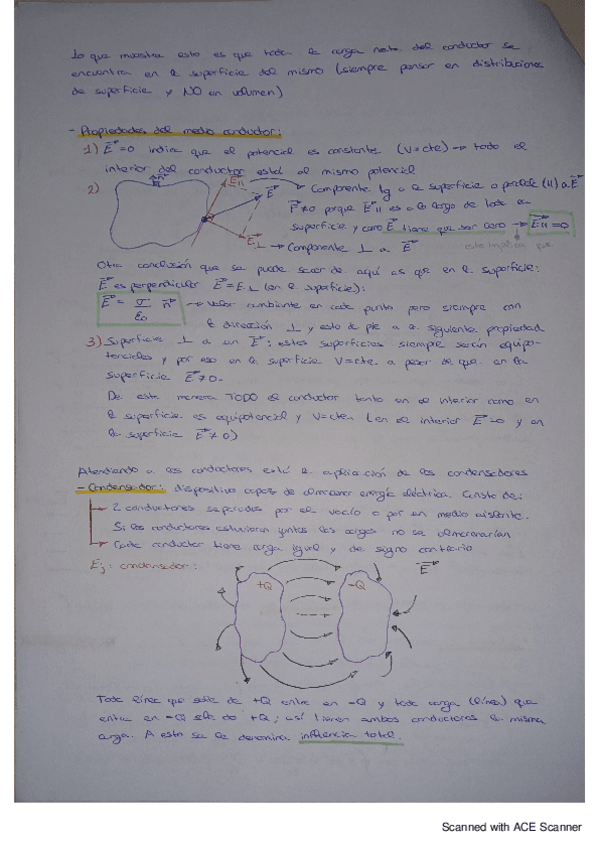 Lo que muestra esto es que toda la carga neta del conductor se
encuentra en la superficie del mismo (siempre pensar en distribuciones
de superficie y NO en volumen)
- Propiedades del medio conductor:
1) E=0 indica que el potencial es constante (V=cte) → todo el
interior del conductor está al mismo potencial
2) n E|| E → Componente tg a la superficie o paralela (||) a E
F≠0 porque E|| es a lo largo de toda la
superficie y como E tiene que ser cero → E||=0
E⊥ → Componente ⊥ a E esto implica que
Otra conclusión que se puede sacar de aquí es que en la superficie:
E es perpendicular E=E⊥ (en la superficie):
E = σ/ε0 n → valor cambiante en cada punto pero siempre con
la dirección ⊥ y esto da pie a la siguiente propiedad
3) Superficie ⊥ a un E: estas superficies siempre serán equipo-
tenciales y por eso en la superficie V=cte a pesar de que en la
superficie E≠0.
De esta manera TODO el conductor tanto en el interior como en
la superficie es equipotencial y V=cte (en el interior E=0 y en
la superficie E≠0)
Atendiendo a los conductores está la aplicación de los condensadores
- Condensador: dispositivo capaz de almacenar energía eléctrica. Consta de:
2 conductores separados por el vacío o por un medio aislante.
Si los conductores estuvieran juntos las cargas no se almacenarían
Cada conductor tiene carga igual y de signo contrario
Ej: condensador:
+Q -Q E
Toda línea que sale de +Q entra en -Q y toda carga (línea) que
entra en -Q sale de +Q; así tienen ambos conductores la misma
carga. A esto se le denomina influencia total.
Scanned with ACE Scanner